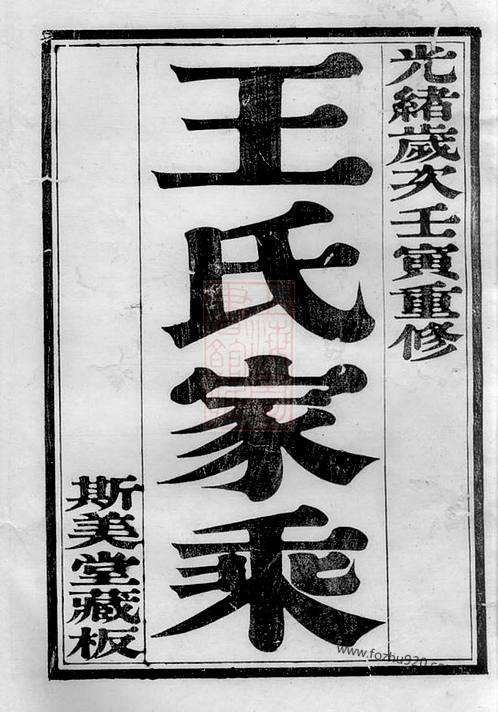 光緒歲次壬寅重修
王氏家乘
斯美堂藏板
www.fozhu920.com